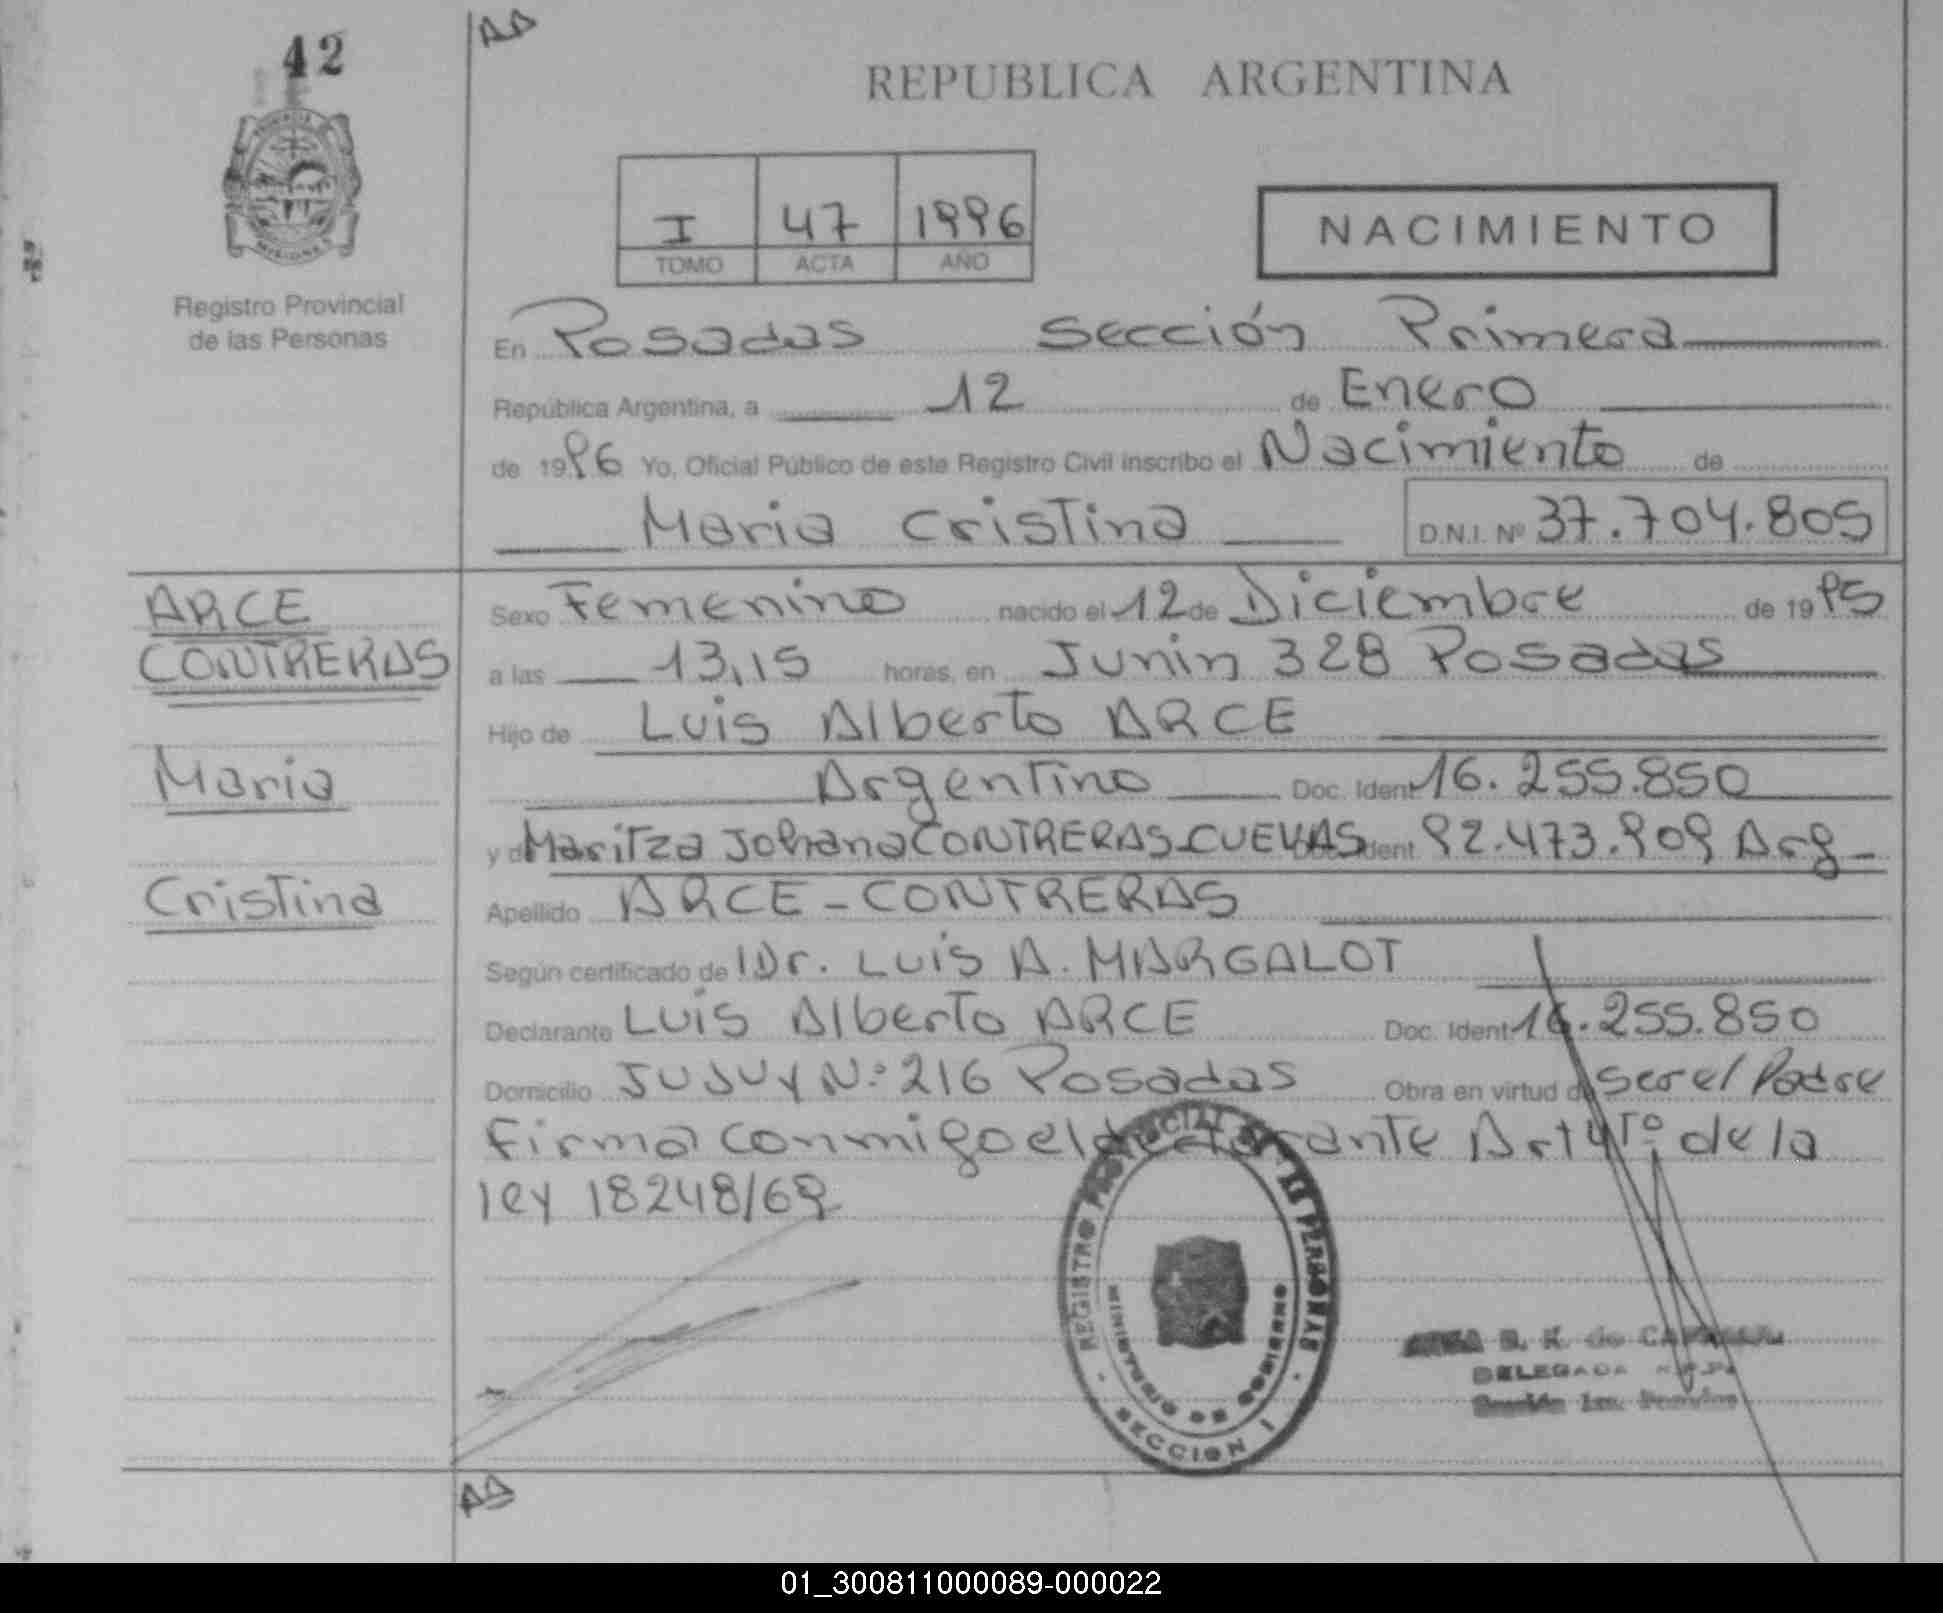 42
AA
REPUBLICA ARGENTINA
I 47 1996
TOMO ACTA AÑO
NACIMIENTO
Registro Provincial
de las Personas
En Posadas Sección Primera
República Argentina, a 12 de Enero
de 1996 Yo, Oficial Público de este Registro Civil inscribo el Nacimiento de
Maria Cristina D.N.I. Nº 37.704.805
ARCE
CONTRERAS
Maria
Cristina
Sexo Femenino nacido el 12 de Diciembre de 1995
a las 13,15 horas, en Junin 328 Posadas
Hijo de Luis Alberto ARCE
Argentino Doc. Ident 16.255.850
y d Maritza Johana CONTRERAS CUEVAS Ident 92.473.909 Arg
Apellido ARCE - CONTRERAS
Según certificado de Dr. LUIS A. MARGALOT
Declarante LUIS Alberto ARCE Doc. Ident 16.255.850
Domicilio JUJUY N.º 216 Posadas Obra en virtud de ser el Padre
Firma conmigo el declarante Art 4to de la
ley 18248/69
REGISTRO PROVINCIAL DE LAS PERSONAS
MINISTERIO DE GOBIERNO
- SECCION I -
DELEGADA
AA
01_300811000089-000022